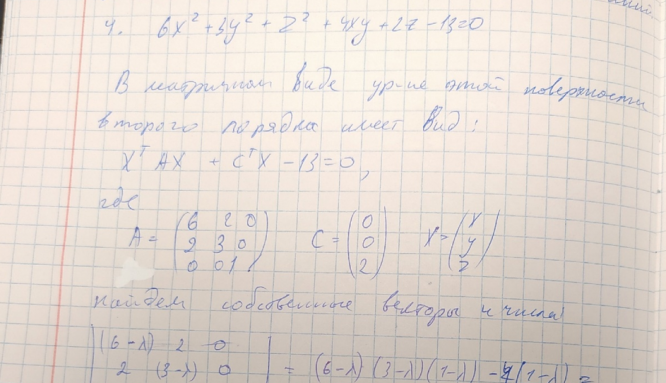 4. 6x² + 3y² + z² + 4xy + 2z - 13 = 0
В матричном виде ур-ие этой поверхности
второго порядка имеет вид:
XᵀAX + CᵀX - 13 = 0,
где
A = (6 2 0 C = (0 X = (x
2 3 0 0 y
0 0 1) 2) z)
найдем собственные векторы и числа
|(6-λ) 2 0
2 (3-λ) 0 | = (6-λ)(3-λ)(1-λ) - 4(1-λ) =